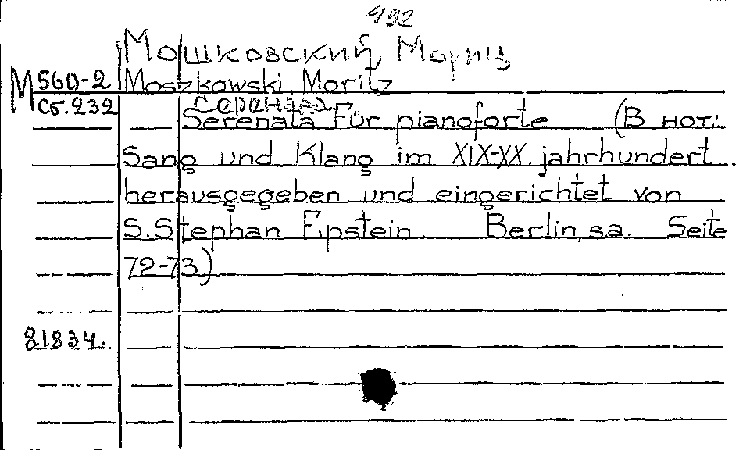 932
Мошковский, Мориц
М 560-2 Moszkowski Moritz
Сб.232 Серенада
Serenata Für pianoforte (В нот:
Sang und Klang im XIX-XX jahrhundert.
herausgegeben und eingerichtet von
S.Stephan Epstein. Berlin, sa. Seite
72-73)
81834.